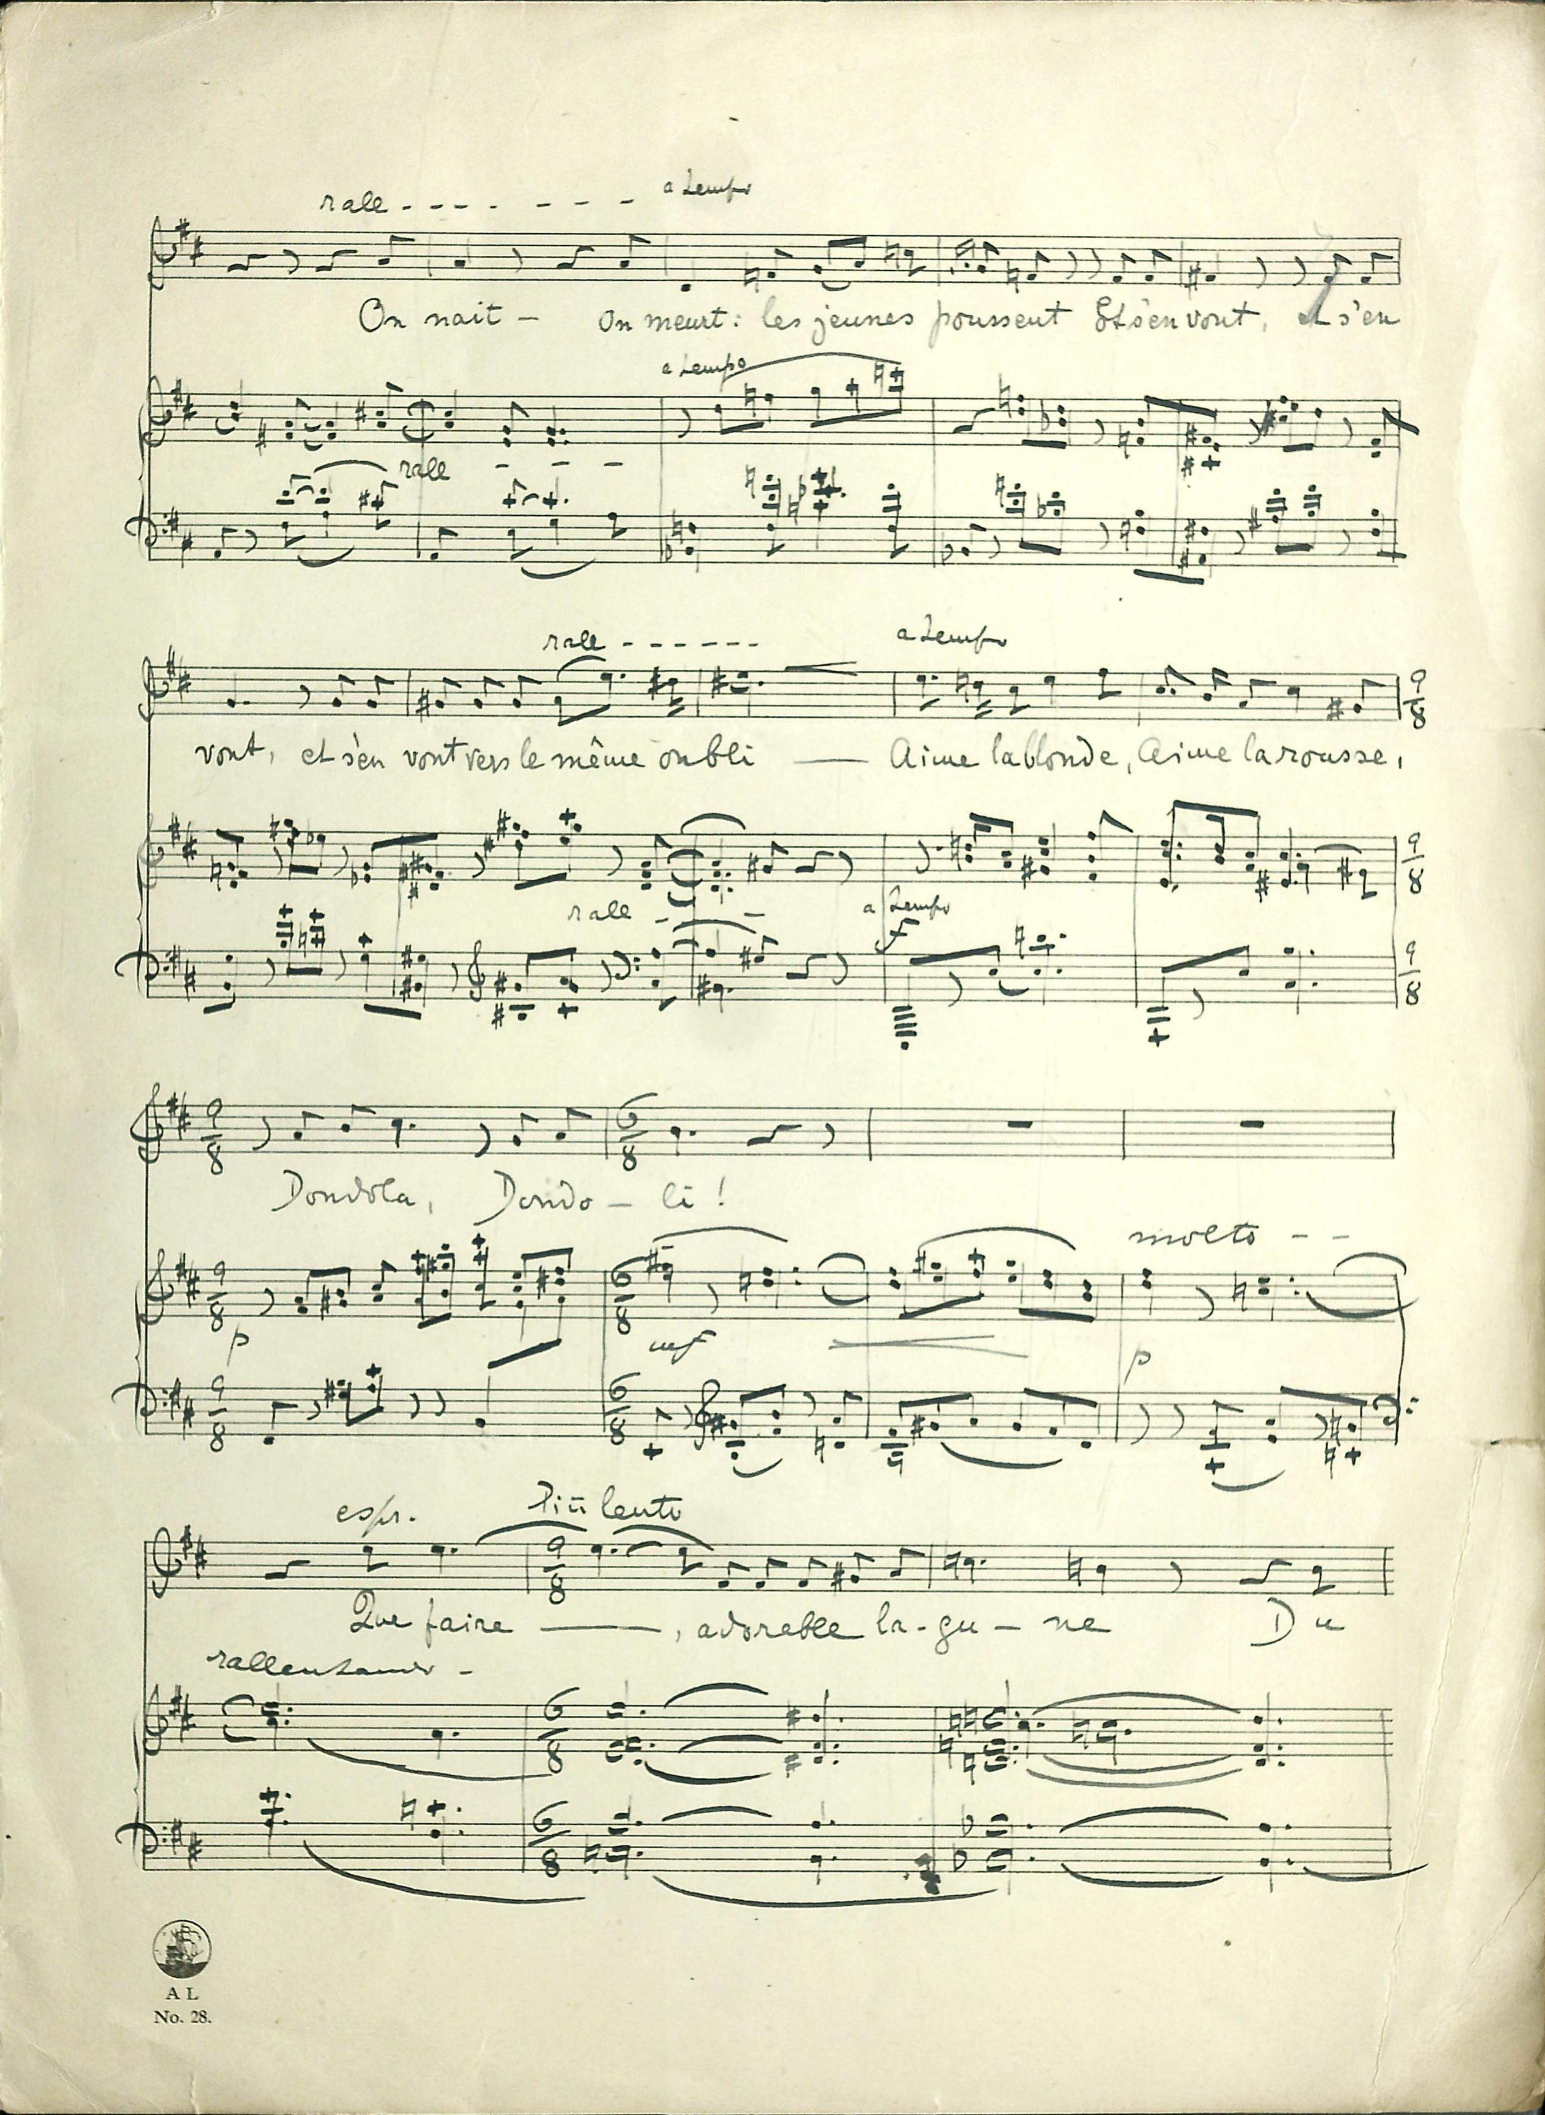 rall - - - - - - - - a tempo
On nait - on meurt : les jeunes poussent Et s'en vont, et s'en
a tempo
rall - - - -
rall - - - - - - a tempo
vont, et s'en vont vers le même oubli — Aime la blonde, Aime la rousse,
9/8
9/8
rall - - a tempo
f
9/8
9/8 6/8
Dondola, Dondo - li !
molto - -
9/8 6/8
p mf p
9/8 6/8
espr. Più lento
9/8
Que faire —, adorable la-gu - ne Du
rallentando -
6/8
6/8
A L
No. 28.